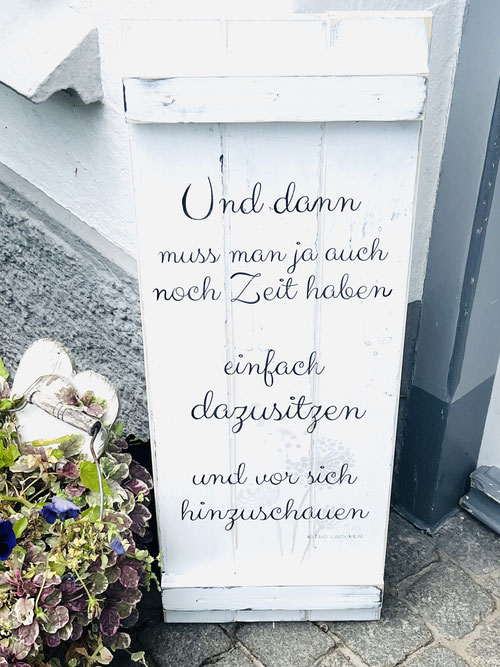 Und dann
muss man ja auch
noch Zeit haben
einfach
dazusitzen
und vor sich
hinzuschauen